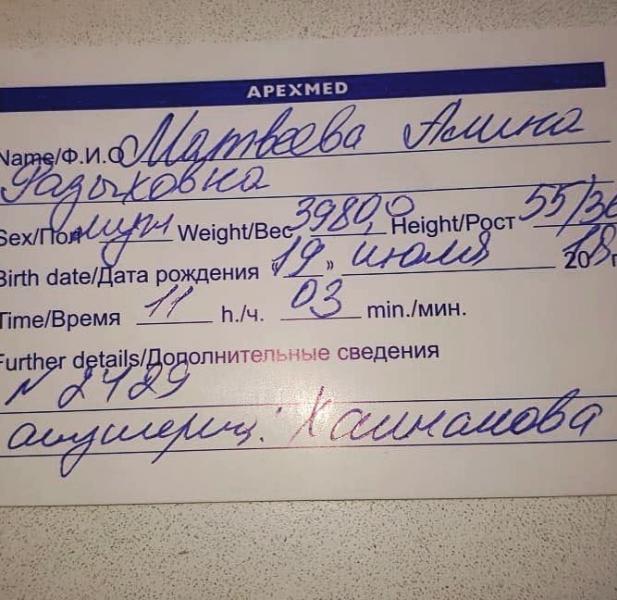 APEXMED
Name/Ф.И.О Матвеева Алина
Радыховна
Sex/Пол муж Weight/Вес 3980,0 Height/Рост 55/36
Birth date/Дата рождения «19» июля 2018 г
Time/Время 11 h./ч. 03 min./мин.
Further details/Дополнительные сведения
N 2429
акушерка: Халнамова